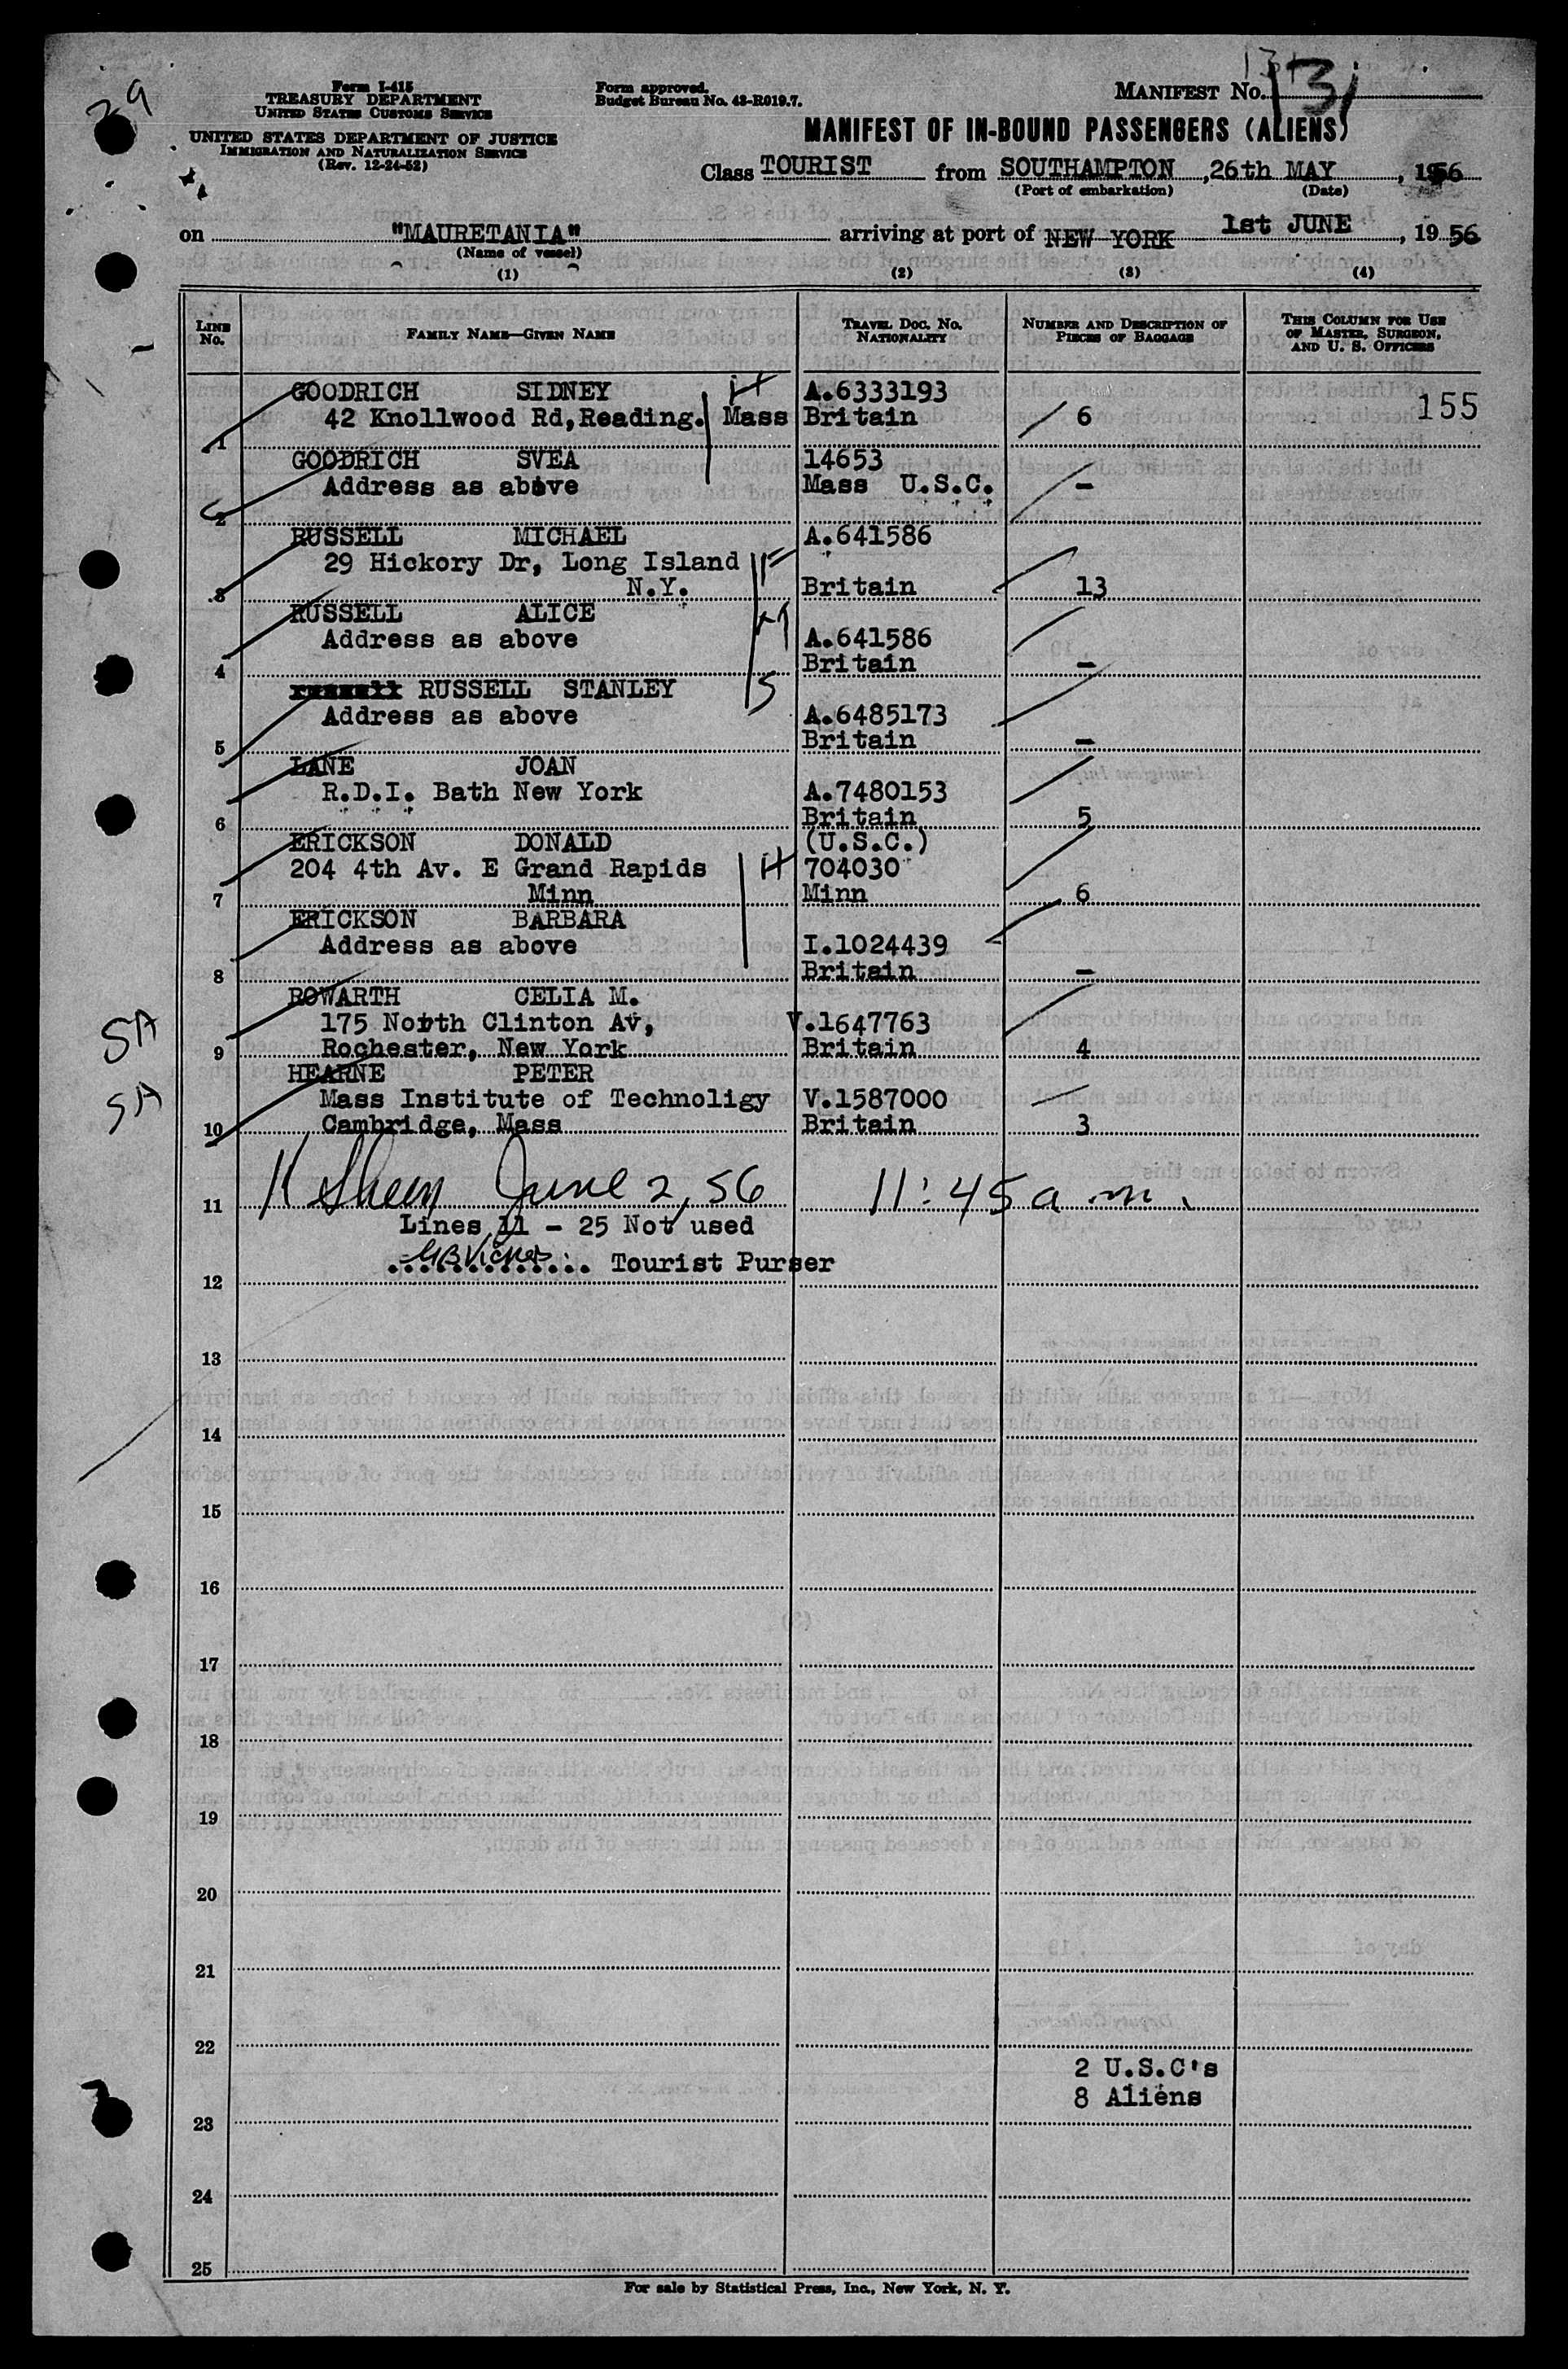 29
Form I-415
TREASURY DEPARTMENT
UNITED STATES CUSTOMS SERVICE
UNITED STATES DEPARTMENT OF JUSTICE
IMMIGRATION AND NATURALIZATION SERVICE
(Rev. 12-24-52)
Form approved.
Budget Bureau No. 43-R019.7.
MANIFEST NO. 13
MANIFEST OF IN-BOUND PASSENGERS (ALIENS)
Class TOURIST from SOUTHAMPTON , 26th MAY , 1956
(Port of embarkation) (Date)
on "MAURETANIA" arriving at port of NEW YORK 1st JUNE , 19 56
(Name of vessel)
(1) (2) (3) (4)
LINE No. FAMILY NAME—GIVEN NAME TRAVEL DOC. NO. NATIONALITY NUMBER AND DESCRIPTION OF PIECES OF BAGGAGE THIS COLUMN FOR USE OF MASTER, SURGEON, AND U. S. OFFICERS
GOODRICH SIDNEY A.6333193 155
1 42 Knollwood Rd,Reading. Mass Britain 6
GOODRICH SVEA 14653
2 Address as above Mass U.S.C. -
RUSSELL MICHAEL A.641586
29 Hickory Dr, Long Island
3 N.Y. Britain 13
RUSSELL ALICE
Address as above A.641586
4 Britain -
RUSSELL STANLEY
Address as above A.6485173
5 Britain -
LANE JOAN
R.D.I. Bath New York A.7480153
6 Britain 5
ERICKSON DONALD (U.S.C.)
204 4th Av. E Grand Rapids H 704030
7 Minn Minn 6
ERICKSON BARBARA
Address as above I.1024439
8 Britain -
ROWARTH CELIA M.
SA 175 North Clinton Av, V.1647763
9 Rochester, New York Britain 4
HEARNE PETER
SA Mass Institute of Technoligy V.1587000
10 Cambridge, Mass Britain 3
11 June 2, 56 11:45 a.m.
Lines 11 - 25 Not used
Tourist Purser
12
13
14
15
16
17
18
19
20
21
22
2 U.S.C's
8 Aliens
23
24
25
For sale by Statistical Press, Inc., New York, N. Y.